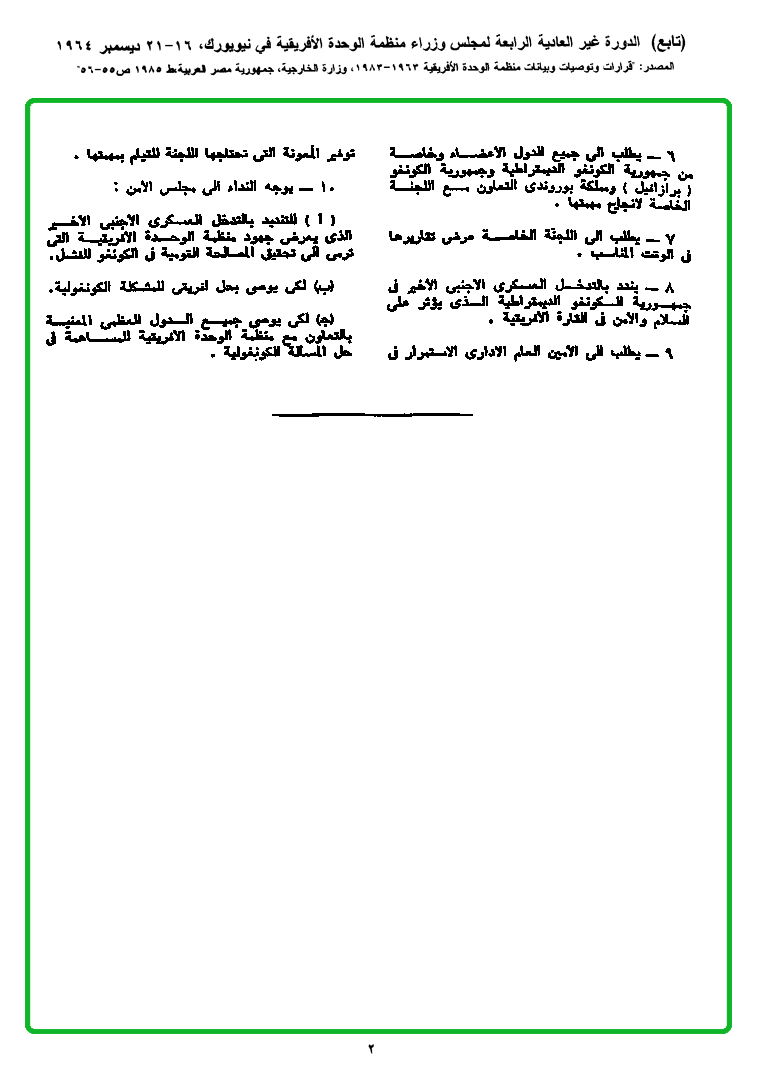 (تابع) الدورة غير العادية الرابعة لمجلس وزراء منظمة الوحدة الأفريقية في نيويورك، ١٦-٢١ ديسمبر ١٩٦٤
المصدر: "قرارات وتوصيات وبيانات منظمة الوحدة الأفريقية ١٩٦٣-١٩٨٣، وزارة الخارجية، جمهورية مصر العربية،ط ١٩٨٥ ص٥٥-٥٦"
٦ — يطلب الى جميع الدول الأعضاء وخاصة
من جمهورية الكونغو الديمقراطية وجمهورية الكونغو
( برازافيل ) ومملكة بوروندى التعاون مع اللجنة
الخاصة لانجاح مهمتها .
٧ — يطلب الى اللجنة الخاصة عرض تقاريرها
فى الوقت المناسب .
٨ — يندد بالتدخل العسكرى الاجنبى الأخير فى
جمهورية الكونغو الديمقراطية الذى يؤثر على
السلام والامن فى القارة الأفريقية .
٩ — يطلب الى الأمين العام الادارى الاستمرار فى
توفير المعونة التى تحتاجها اللجنة للقيام بمهمتها .
١٠ — يوجه النداء الى مجلس الأمن :
( أ ) للتنديد بالتدخل العسكرى الأجنبى الأخير
الذى يعرض جهود منظمة الوحدة الأفريقية التى
ترمى الى تحقيق المصالحة القومية فى الكونغو للفشل.
(ب) لكى يوصى بحل افريقى للمشكلة الكونغولية.
(ج) لكى يوصى جميع الدول العظمى المعنية
بالتعاون مع منظمة الوحدة الافريقية للمساهمة فى
حل المسألة الكونغولية .
٢